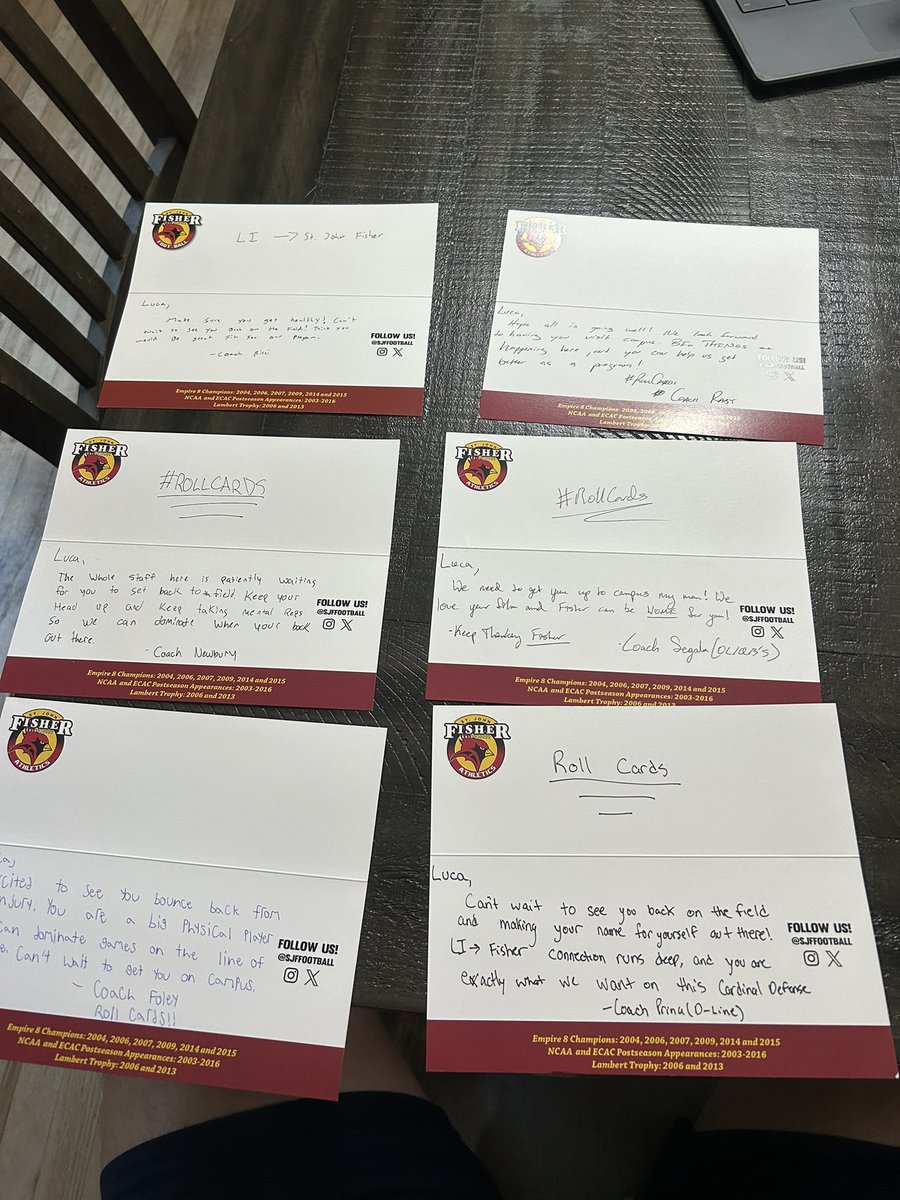 ST. JOHN
FISHER
FOOTBALL
LI → St. John Fisher
Luca,
Make sure you get healthy! Can't
wait to see you back on the field! Think you
would be great fit for our program.
- Coach Ricci
FOLLOW US!
@SJFFOOTBALL
Empire 8 Champions: 2004, 2006, 2007, 2009, 2014 and 2015
NCAA and ECAC Postseason Appearances: 2003-2016
Lambert Trophy: 2006 and 2013
FISHER
ATHLETICS
Luca,
Hope all is going well! We look forward
to having you visit campus. BIG THINGS are
happening here, and you can help us get
better as a program!
#RollCards
# Coach Rast
FOLLOW US!
@SJFFOOTBALL
Empire 8 Champions: 2004, 2006, 2007, 2009, 2014 and 2015
NCAA and ECAC Postseason Appearances: 2003-2016
Lambert Trophy: 2006 and 2013
ST. JOHN
FISHER
ATHLETICS
#ROLLCARDS
Luca,
The whole staff here is patiently waiting
for you to get back to the field. Keep your
Head up and Keep taking mental Reps
so we can dominate when your back
out there.
- Coach Newbury
FOLLOW US!
@SJFFOOTBALL
Empire 8 Champions: 2004, 2006, 2007, 2009, 2014 and 2015
NCAA and ECAC Postseason Appearances: 2003-2016
Lambert Trophy: 2006 and 2013
ST. JOHN
FISHER
ATHLETICS
#RollCards
Luca,
We need to get you up to campus my man! We
love your film and Fisher can be HOME for you!
-Keep Thinking Fisher
-Coach Segala (OL/QB'S)
FOLLOW US!
@SJFFOOTBALL
Empire 8 Champions: 2004, 2006, 2007, 2009, 2014 and 2015
NCAA and ECAC Postseason Appearances: 2003-2016
Lambert Trophy: 2006 and 2013
ST. JOHN
FISHER
ATHLETICS
cited to see you bounce back from
njury. You are a big physical player
can dominate games on the line of
e. Can't wait to get you on campus.
- Coach Foley
Roll Cards!!
FOLLOW US!
@SJFFOOTBALL
Empire 8 Champions: 2004, 2006, 2007, 2009, 2014 and 2015
NCAA and ECAC Postseason Appearances: 2003-2016
Lambert Trophy: 2006 and 2013
ST. JOHN
FISHER
ATHLETICS
Roll Cards
Luca,
Can't wait to see you back on the field
and making your name for yourself out there!
LI → Fisher connection runs deep, and you are
exactly what we want on this Cardinal Defense
-Coach Prina (D-Line)
FOLLOW US!
@SJFFOOTBALL
Empire 8 Champions: 2004, 2006, 2007, 2009, 2014 and 2015
NCAA and ECAC Postseason Appearances: 2003-2016
Lambert Trophy: 2006 and 2013